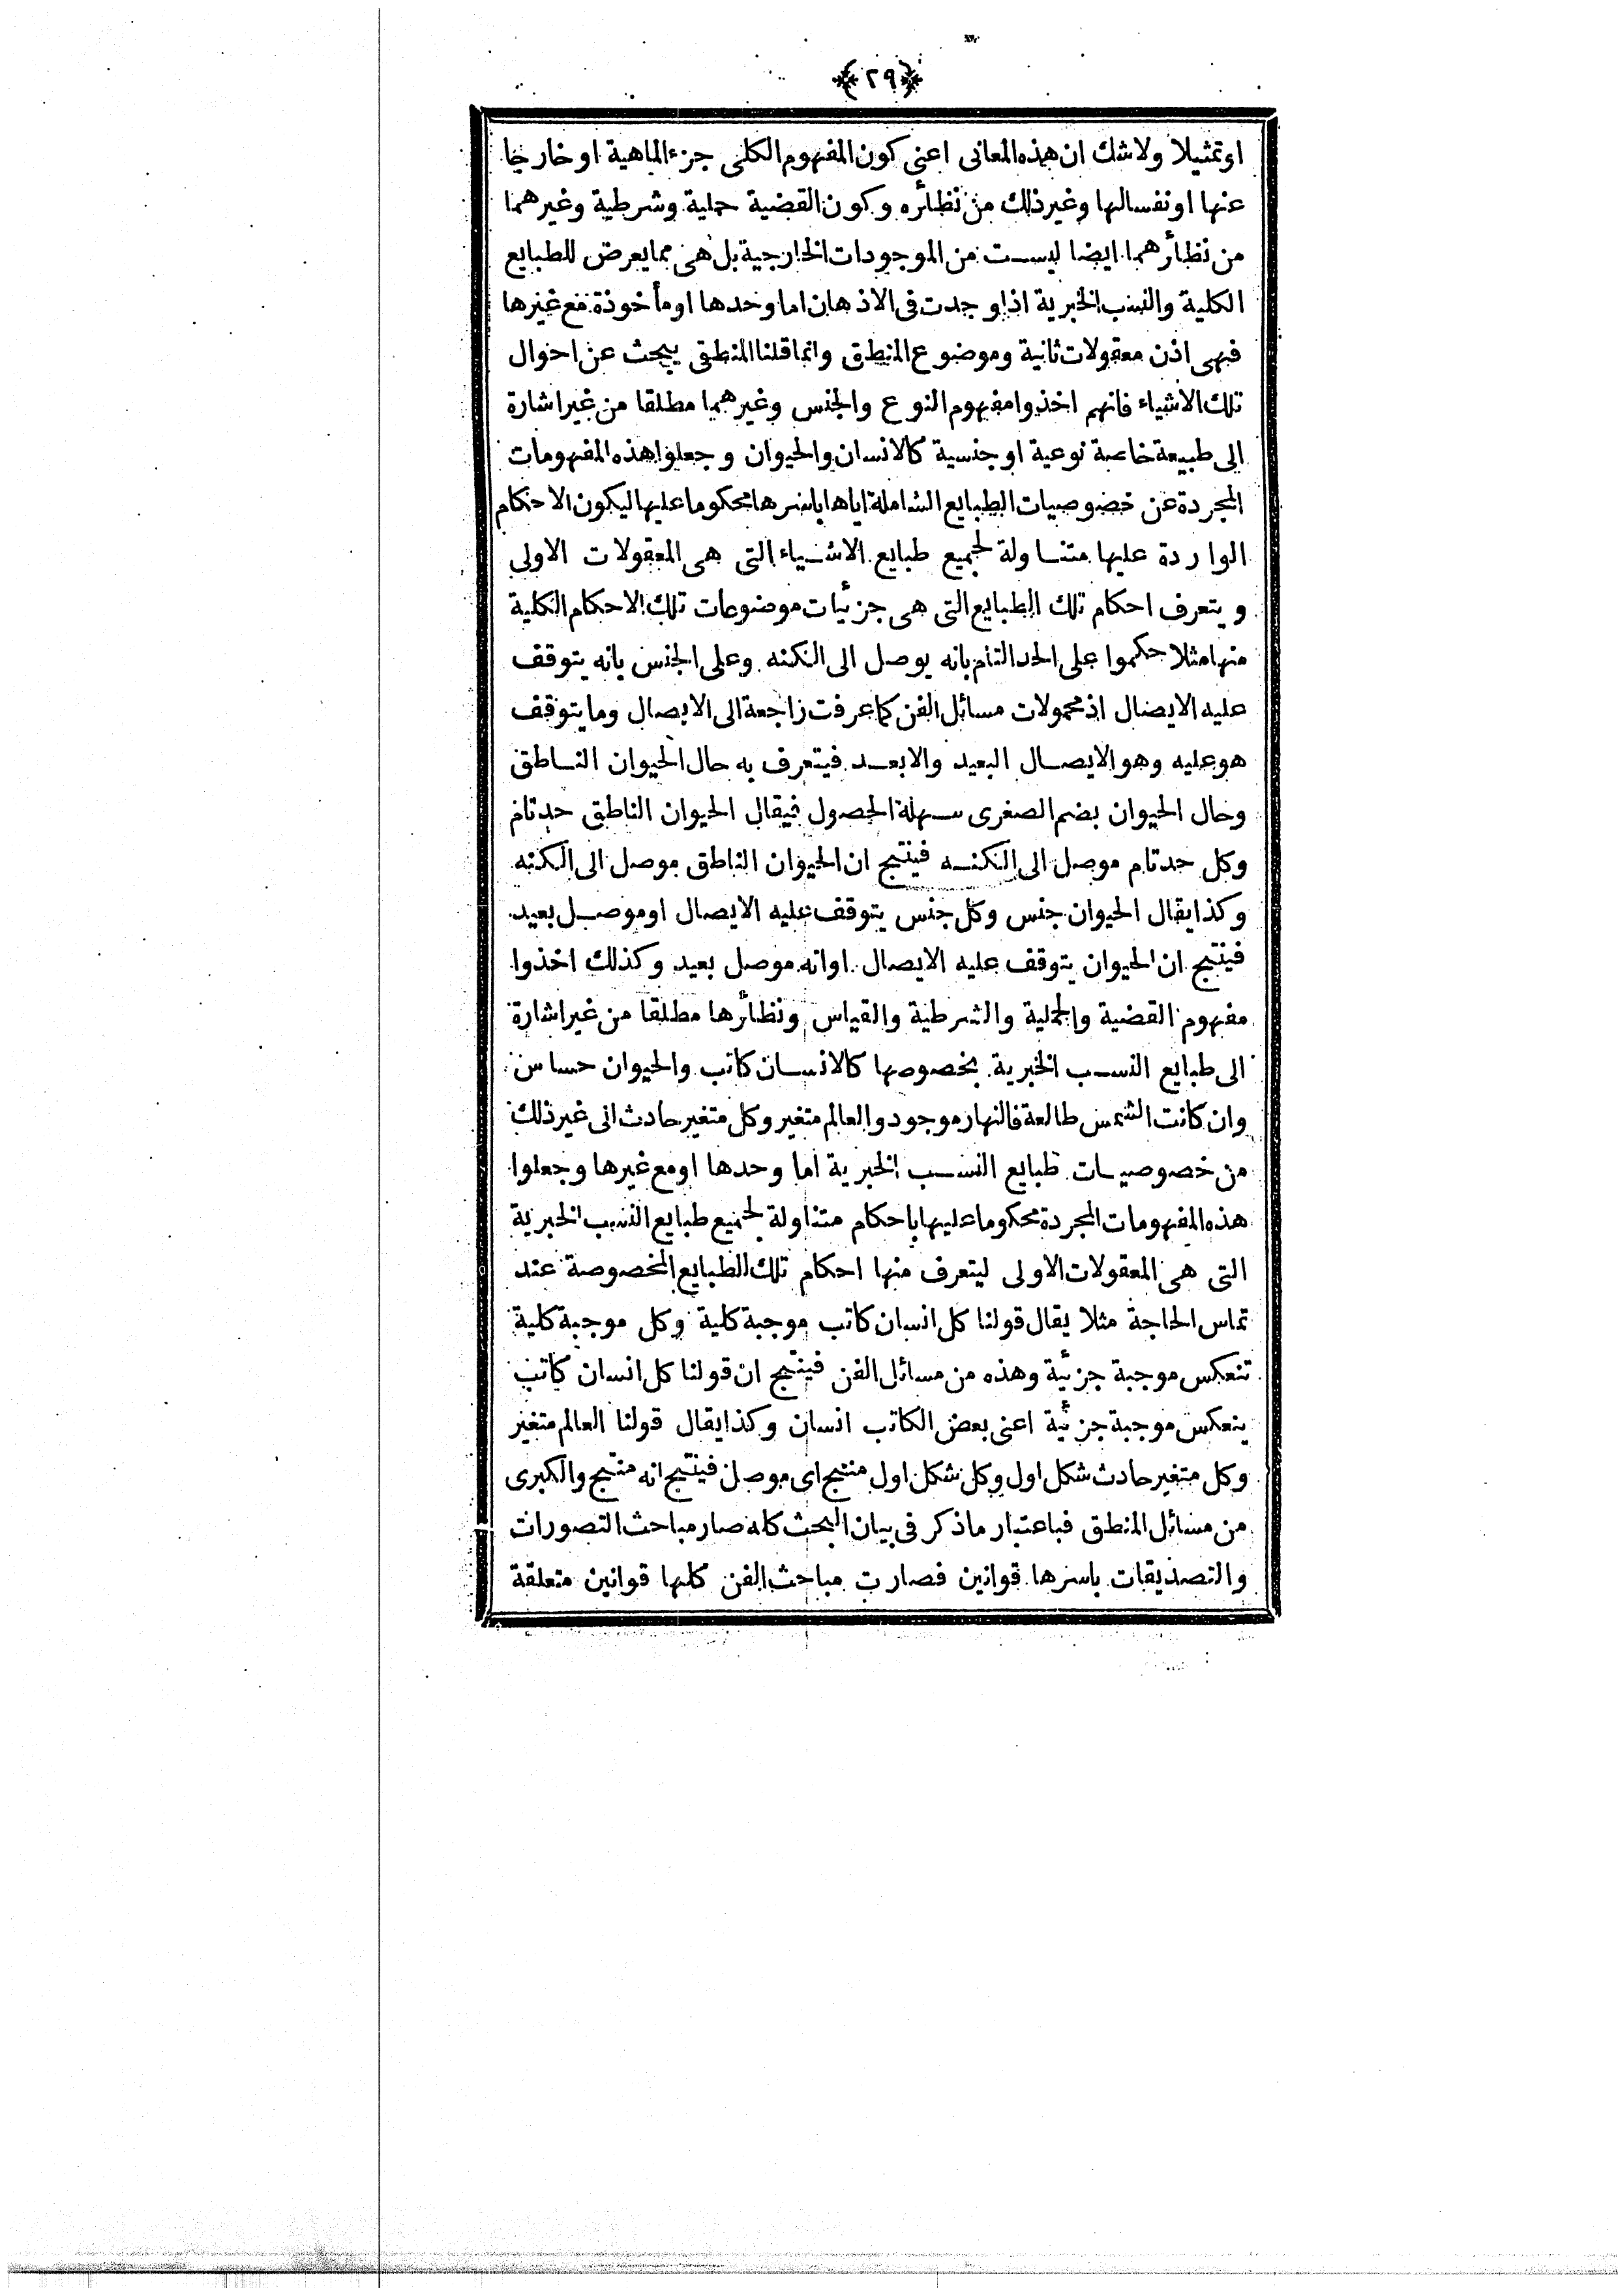 ﴿٢٩﴾
اوتمثيلا ولاشك ان هذه المعانى اعنى كون المفهوم الكلى جزء الماهية او خارجا
عنها اونفسالها وغيرذلك من نظائره وكون القضية حملية وشرطية وغيرهما
من نظائرهما ايضا ليست من الموجودات الخارجية بل هى مما يعرض للطبايع
الكلية والنسب الخبرية اذا وجدت فى الاذهان اما وحدها اومأخوذة مع غيرها
فهى اذن معقولات ثانية وموضوع المنطق وانما قلنا المنطقى يبحث عن احوال
تلك الاشياء فانهم اخذوا مفهوم النوع والجنس وغيرهما مطلقا من غيراشارة
الى طبيعة خاصة نوعية اوجنسية كالانسان والحيوان وجعلوا هذه المفهومات
المجردة عن خصوصيات الطبايع الشاملة اياها باسرها محكوما عليها ليكون الاحكام
الواردة عليها متناولة لجميع طبايع الاشياء التى هى المعقولات الاولى
ويتعرف احكام تلك الطبايع التى هى جزئيات موضوعات تلك الاحكام الكلية
منها مثلا حكموا على الحد التام بانه يوصل الى الكنه وعلى الجنس بانه يتوقف
عليه الايصال اذ محمولات مسائل الفن كما عرفت راجعة الى الايصال ومايتوقف
هوعليه وهو الايصال البعيد والابعد فيتعرف به حال الحيوان الناطق
وحال الحيوان بضم الصغرى سهلة الحصول فيقال الحيوان الناطق حدتام
وكل حدتام موصل الى الكنه فينتج ان الحيوان الناطق موصل الى الكنه
وكذا يقال الحيوان جنس وكل جنس يتوقف عليه الايصال اوموصل بعيد
فينتج ان الحيوان يتوقف عليه الايصال اوانه موصل بعيد وكذلك اخذوا
مفهوم القضية والحملية والشرطية والقياس ونظائرها مطلقا من غيراشارة
الى طبايع النسب الخبرية بخصوصها كالانسان كاتب والحيوان حساس
وان كانت الشمس طالعة فالنهار موجود والعالم متغير وكل متغير حادث الى غيرذلك
من خصوصيات طبايع النسب الخبرية اما وحدها اومع غيرها وجعلوا
هذه المفهومات المجردة محكوما عليها باحكام متناولة لجميع طبايع النسب الخبرية
التى هى المعقولات الاولى ليتعرف منها احكام تلك الطبايع المخصوصة عند
تماس الحاجة مثلا يقال قولنا كل انسان كاتب موجبة كلية وكل موجبة كلية
تنعكس موجبة جزئية وهذه من مسائل الفن فينتج ان قولنا كل انسان كاتب
ينعكس موجبة جزئية اعنى بعض الكاتب انسان وكذا يقال قولنا العالم متغير
وكل متغير حادث شكل اول وكل شكل اول منتج اى موصل فينتج انه منتج والكبرى
من مسائل المنطق فباعتبار ماذكر فى بيان البحث كله صار مباحث التصورات
والتصديقات باسرها قوانين فصارت مباحث الفن كلها قوانين متعلقة